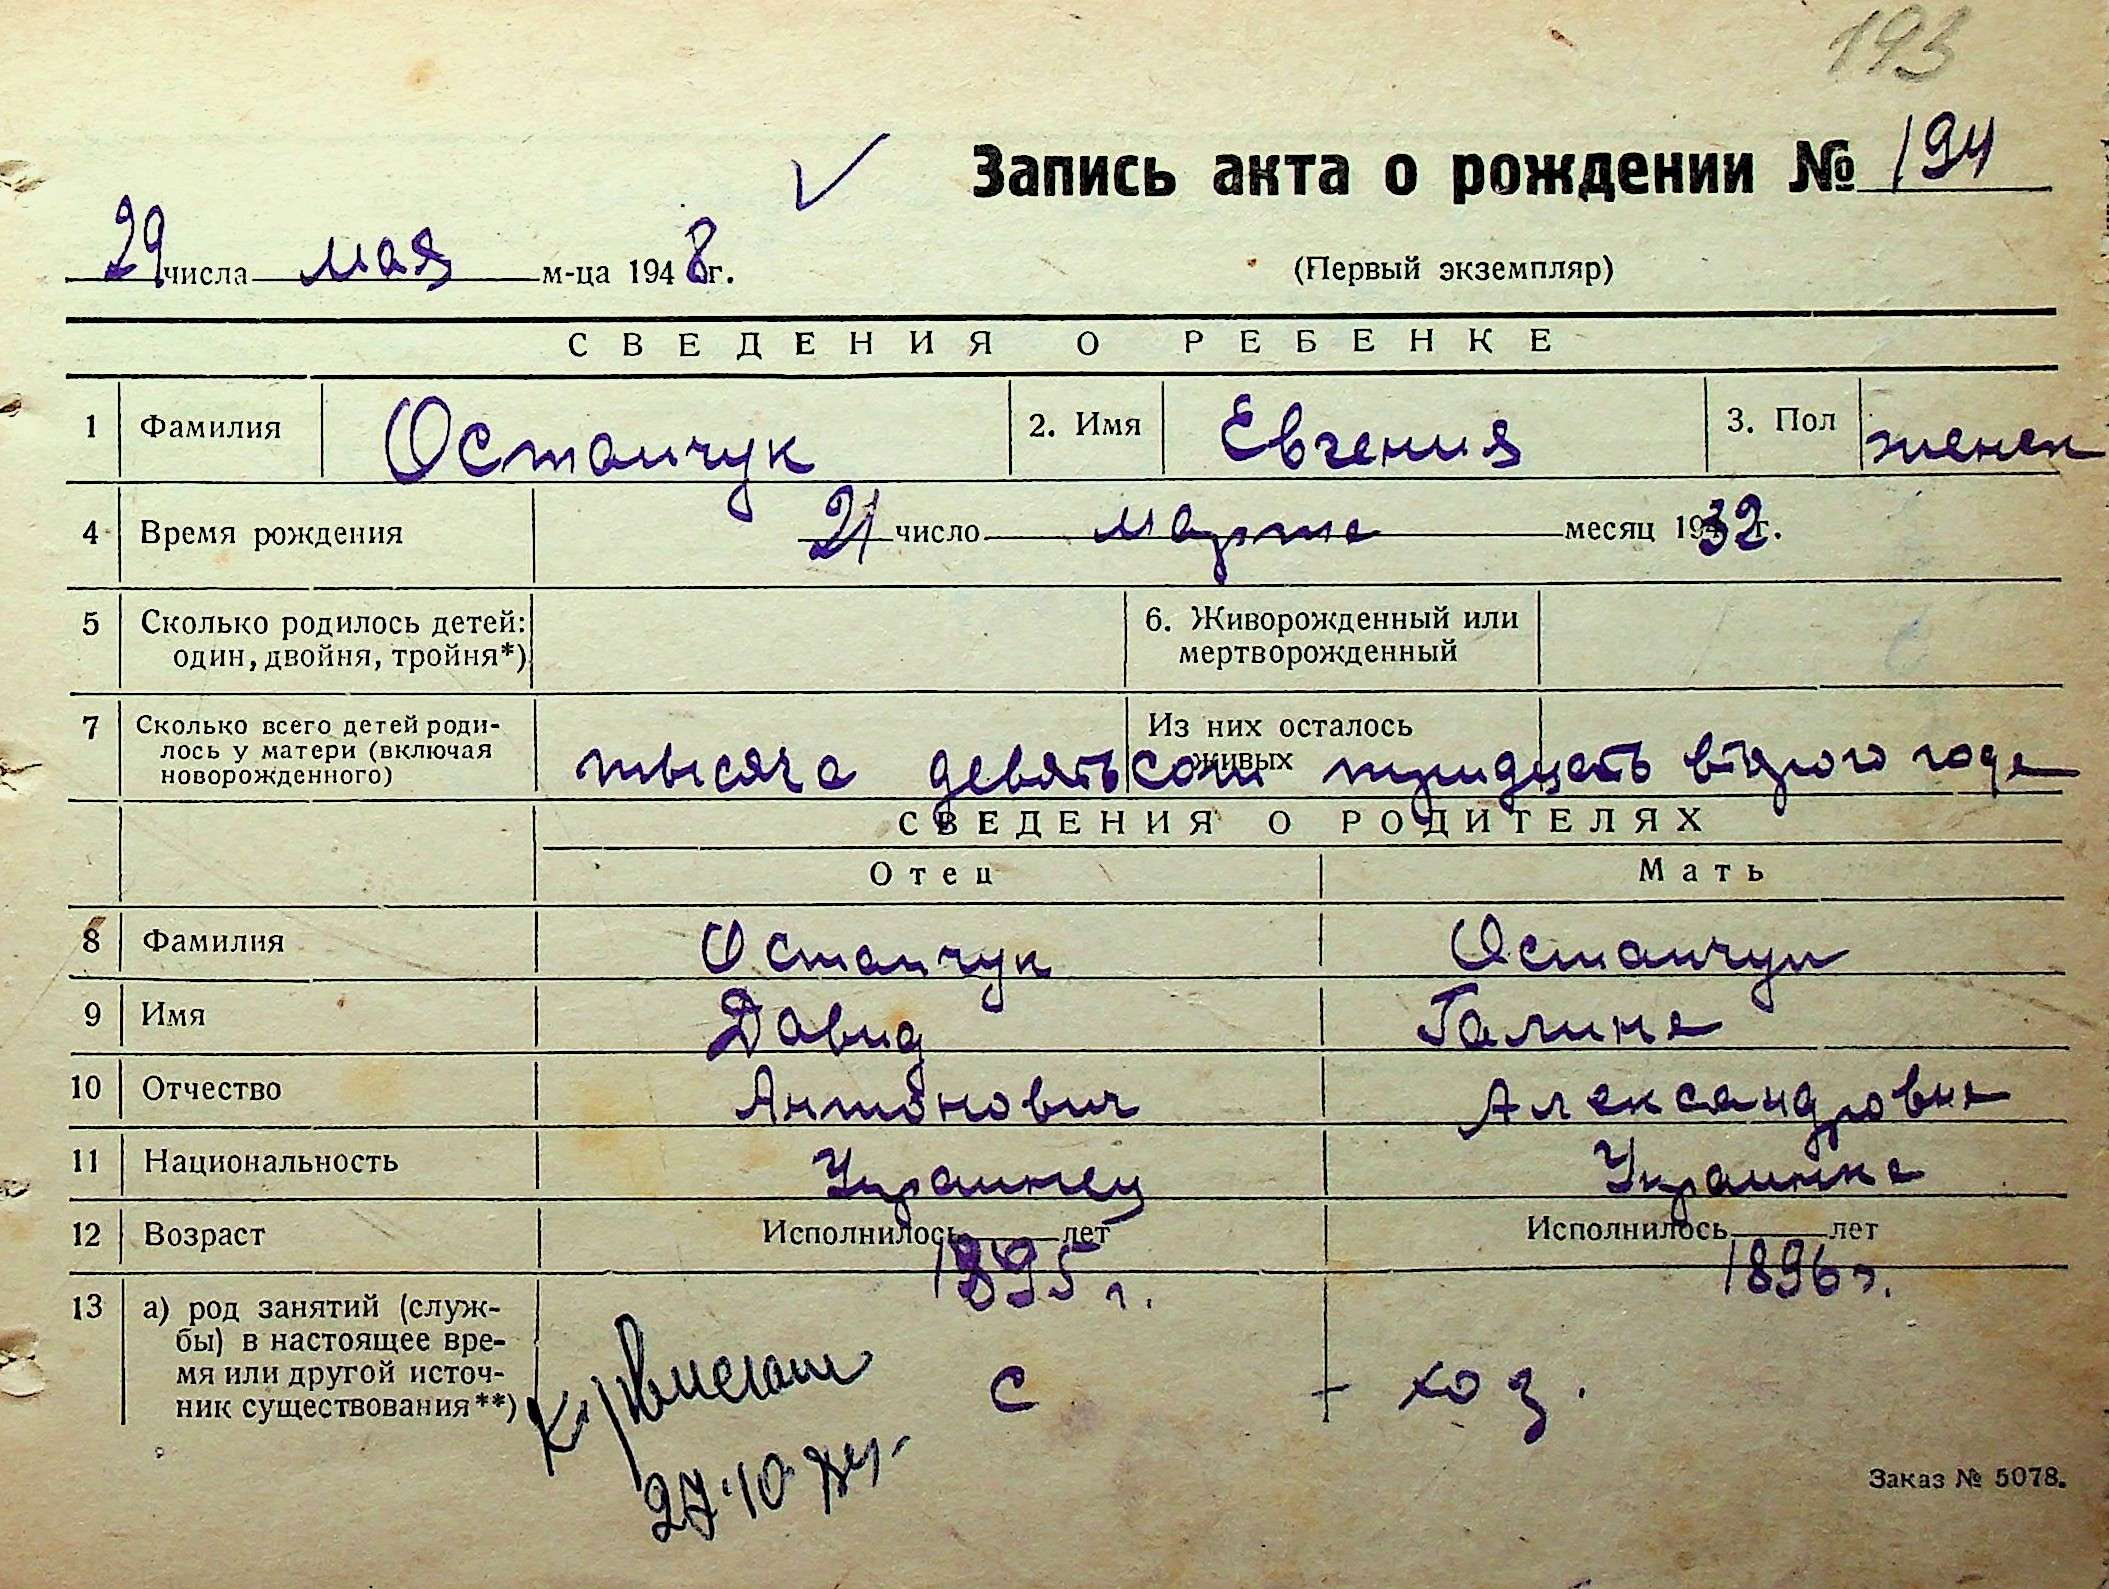 193
Запись акта о рождении № 194
29 числа мая м-ца 1948 г.
(Первый экземпляр)
СВЕДЕНИЯ О РЕБЕНКЕ
1 Фамилия Остапчук 2. Имя Евгения 3. Пол женск
4 Время рождения 21 число марта месяц 1932 г.
5 Сколько родилось детей: 6. Живорожденный или
один, двойня, тройня*) мертворожденный
7 Сколько всего детей роди- Из них осталось
лось у матери (включая живых
новорожденного)
тысяча девятьсот тридцать второго года
СВЕДЕНИЯ О РОДИТЕЛЯХ
Отец Мать
8 Фамилия Остапчук Остапчук
9 Имя Давид Галина
10 Отчество Антонович Александровна
11 Национальность Украинец Украинка
12 Возраст Исполнилось лет Исполнилось лет
1895 г. 1896 г.
13 а) род занятий (служ-
бы) в настоящее вре-
мя или другой источ-
ник существования**)
с - хоз.
27.10
Заказ № 5078.